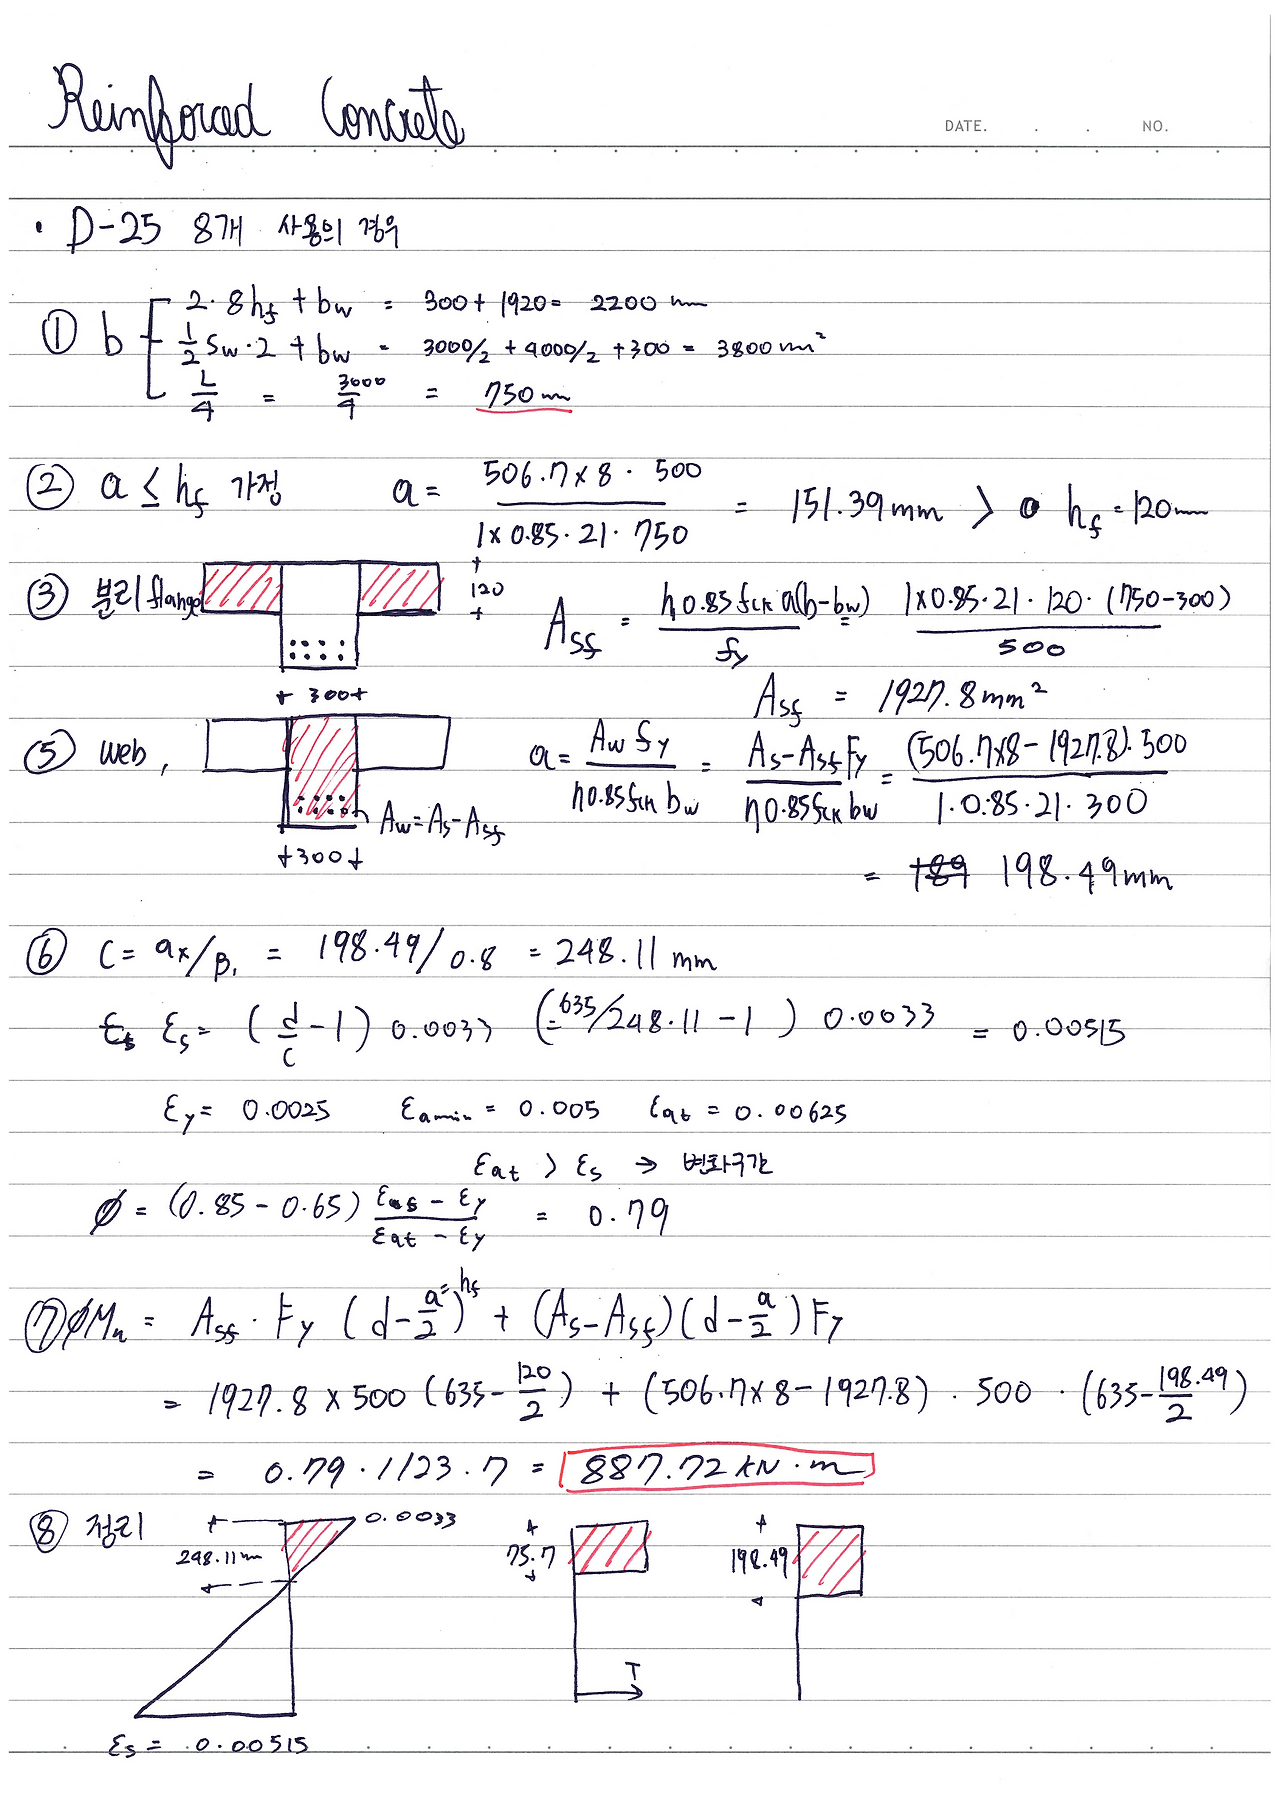 Reinforced Concrete
DATE. . . NO.
· D-25 8개 사용의 경우
① b
2·8hf + bw = 300 + 1920 = 2200 mm
1/2 Sw·2 + bw = 3000/2 + 4000/2 + 300 = 3800 mm²
L/4 = 3000/4 = 750 mm
② a ≤ hf 가정 a = (506.7×8·500)/(1×0.85·21·750) = 151.39mm > hf = 120mm
③ 분리 flange
120
300
Asf = (η0.85fck a(b-bw))/fy = (1×0.85·21·120·(750-300))/500
Asf = 1927.8mm²
⑤ web,
Aw = As-Asf
300
a = (Aw fy)/(η0.85fck bw) = (As-Asf Fy)/(η0.85fck bw) = ((506.7×8-1927.8)·500)/(1·0.85·21·300)
= 189 198.49mm
⑥ C = ax/β₁ = 198.49/0.8 = 248.11 mm
εs εs = (d/c - 1) 0.0033 (=635/248.11 - 1) 0.0033 = 0.00515
εy = 0.0025 εamin = 0.005 εat = 0.00625
εat > εs → 변화구간
ø = (0.85 - 0.65) (εas - εy)/(εat - εy) = 0.79
⑦ øMn = Asf · Fy (d - a/2) =hf + (As-Asf)(d - a/2)Fy
= 1927.8 × 500 (635 - 120/2) + (506.7×8 - 1927.8) · 500 · (635 - 198.49/2)
= 0.79·1123.7 = 887.72 kN·m
⑧ 정리
0.0033
248.11m
εs = 0.00515
75.7
T
198.49